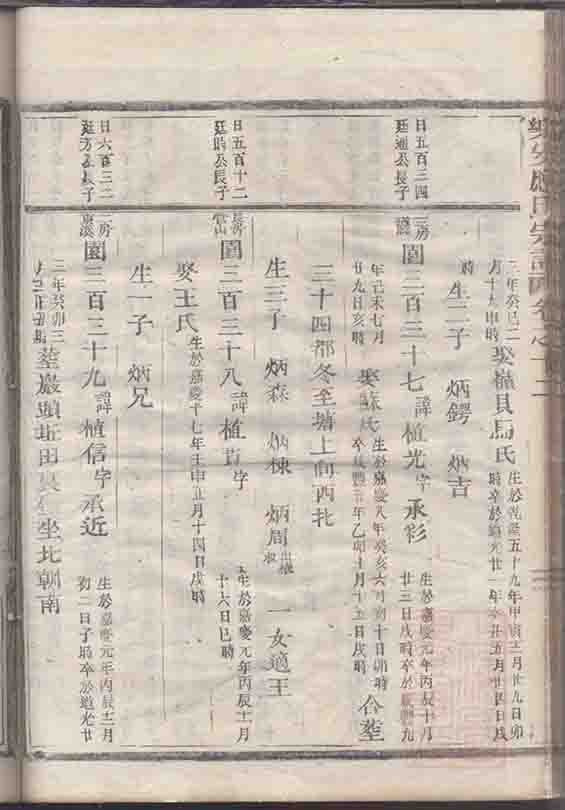 應氏宗譜
三年癸巳二
月十九申時
娶嶺貝馬氏
生於乾隆五十九年甲寅二月廿九日卯
時卒於道光廿一年辛丑五月廿四日戌
時
生二子 炳鍔 炳吉
日五百三四
廷迪公長子
三房
園三百三十七
諱植光字承彩
生於嘉慶元年丙辰十月
廿三日戌時卒於咸豐九
年己未七月
廿九日亥時
娶蘇氏
生於嘉慶八年癸亥六月初十日卯時
卒咸豐五年乙卯十月十五日戌時
合塟
三十四都冬至塘上向西北
生三子 炳森 炳棟 炳周 一女適王
日五百十二
廷時公長子
長房
園三百三十八
諱植 字
生於嘉慶元年丙辰十一月
十六日巳時
娶王氏
生於嘉慶十七年壬申五月十四日戌時
生一子 炳兄
日六百三二
廷方公長子
二房
園三百三十九
諱植信字承近
生於嘉慶元年丙辰十二月
初二日子時卒於道光廿
三年癸卯三
塟巖頭 田 坐北朝南